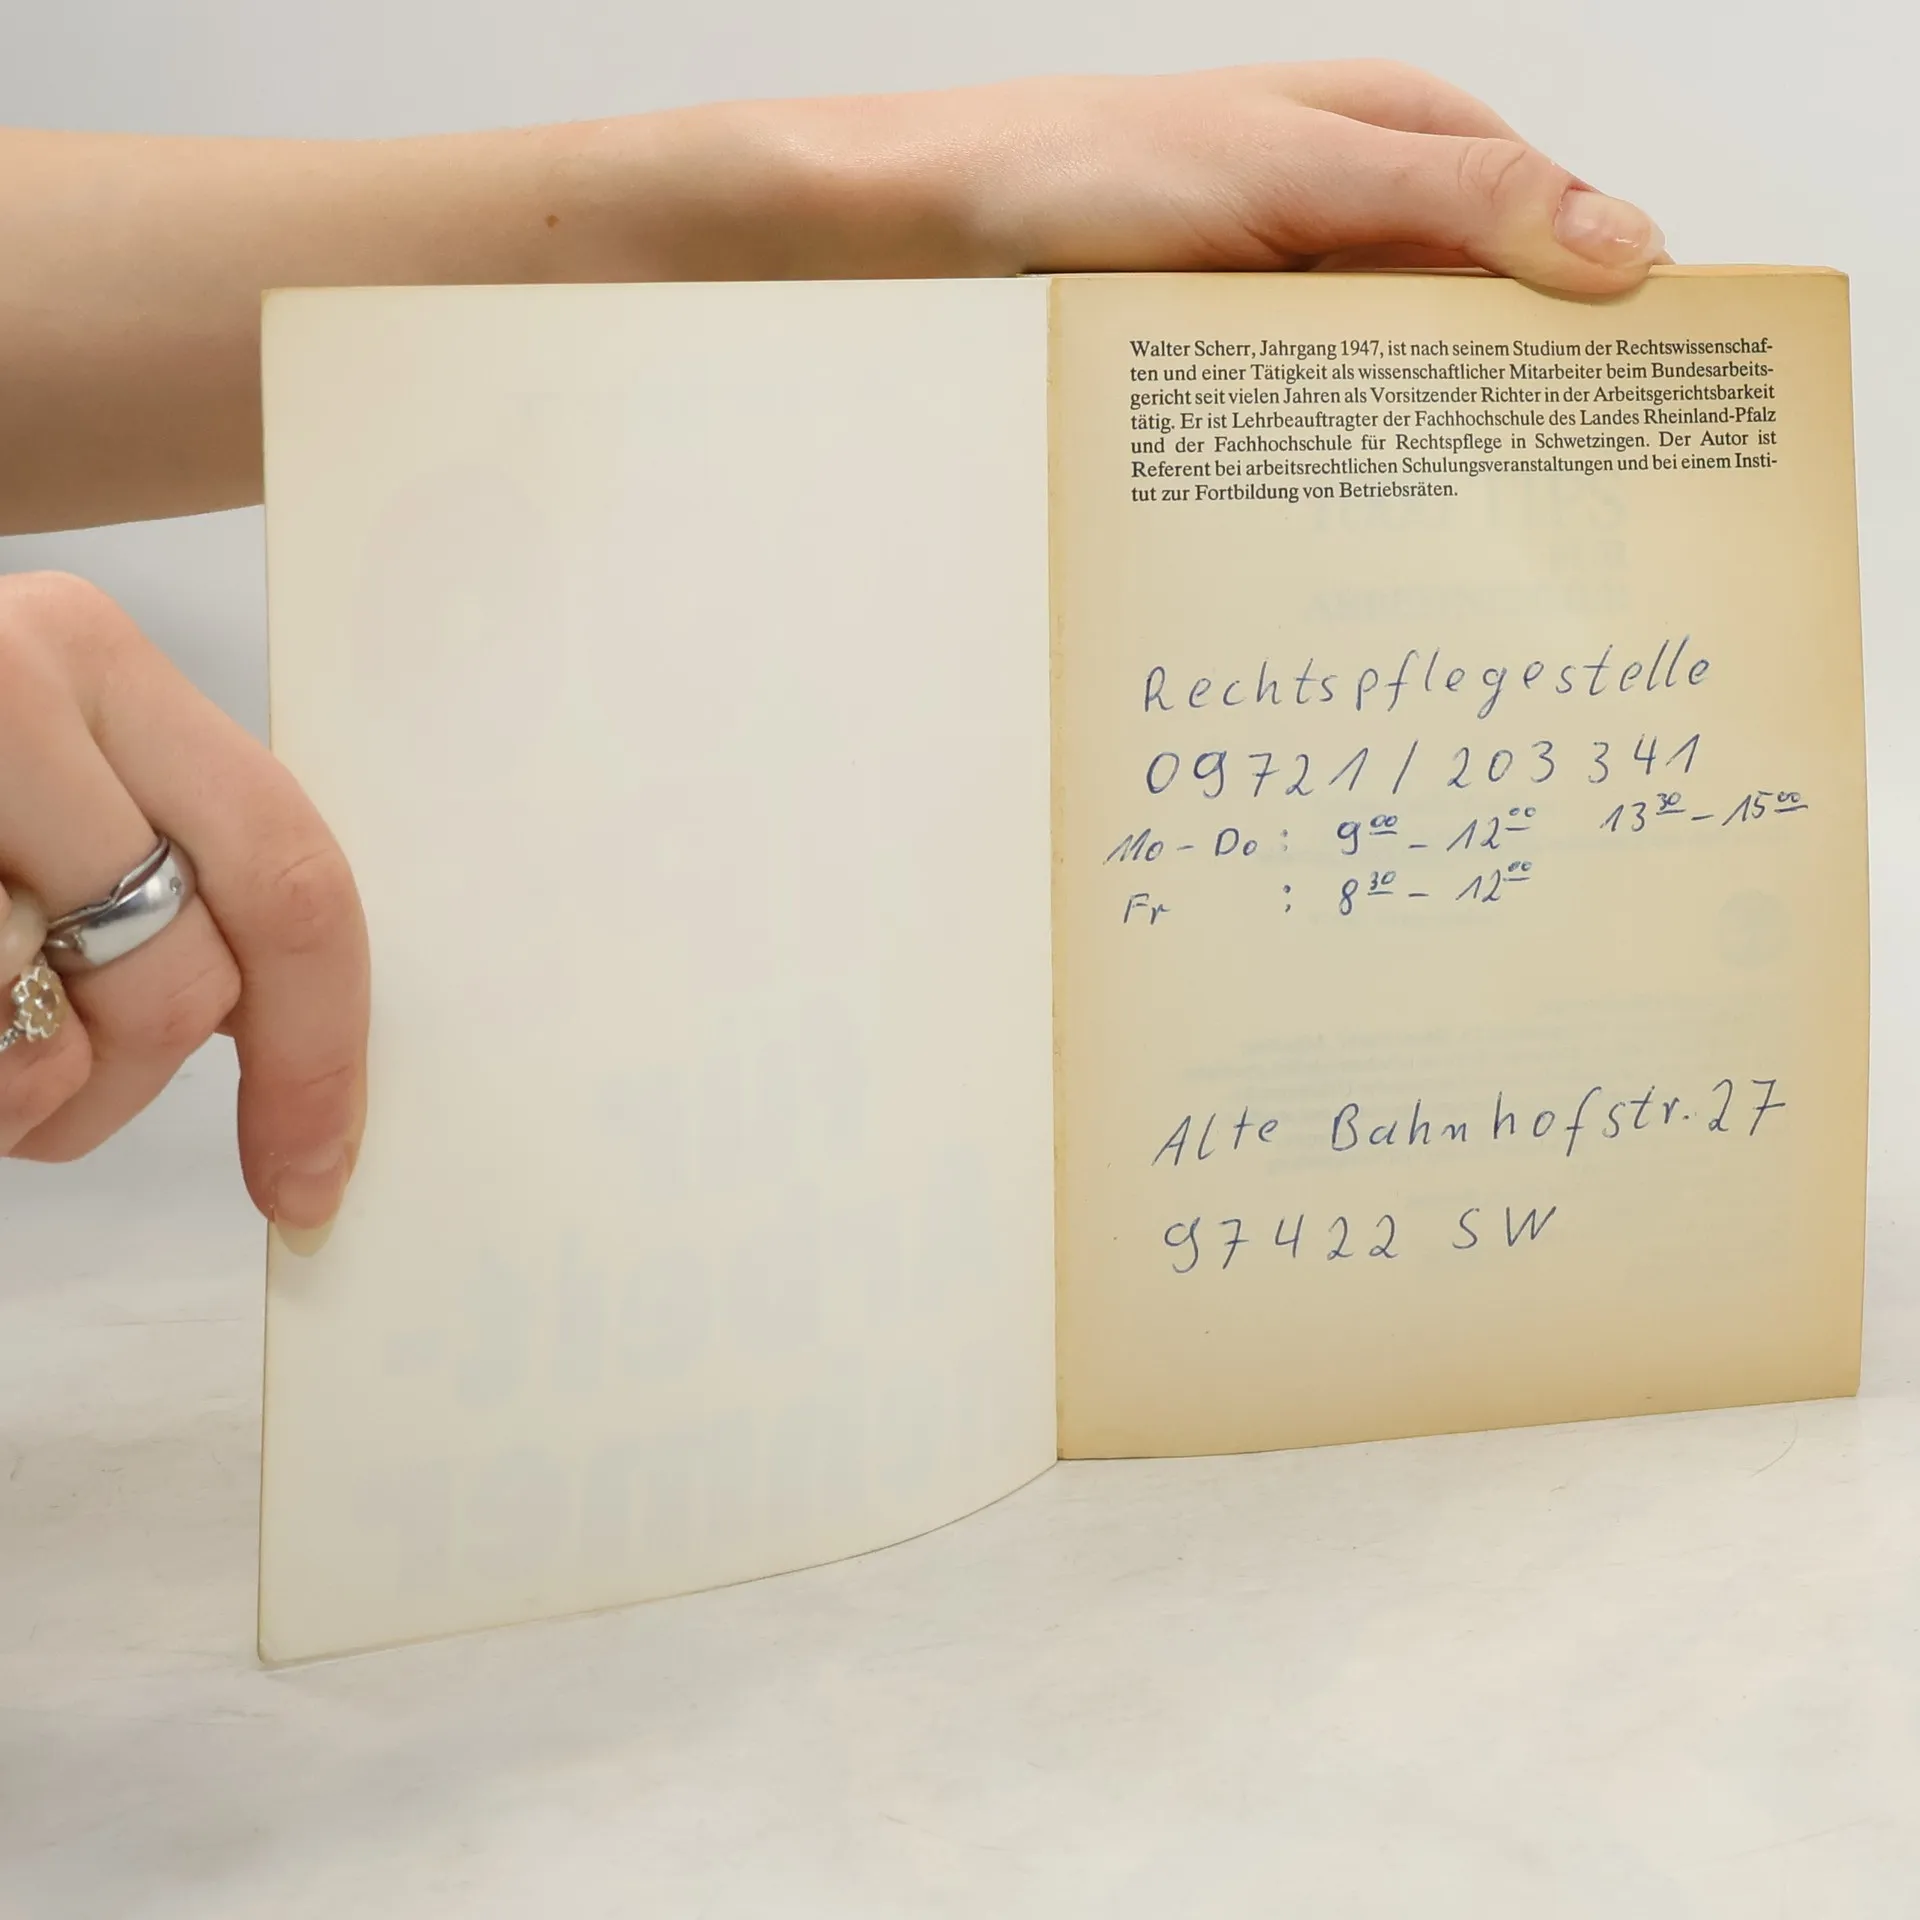 Walter Scherr, Jahrgang 1947, ist nach seinem Studium der Rechtswissenschaf-
ten und einer Tätigkeit als wissenschaftlicher Mitarbeiter beim Bundesarbeits-
gericht seit vielen Jahren als Vorsitzender Richter in der Arbeitsgerichtsbarkeit
tätig. Er ist Lehrbeauftragter der Fachhochschule des Landes Rheinland-Pfalz
und der Fachhochschule für Rechtspflege in Schwetzingen. Der Autor ist
Referent bei arbeitsrechtlichen Schulungsveranstaltungen und bei einem Insti-
tut zur Fortbildung von Betriebsräten.
Rechtspflegestelle
09721/203 341
Mo - Do : 9 00 - 12 00 13 30 - 15 00
Fr : 8 30 - 12 00
Alte Bahnhofstr. 27
97422 SW